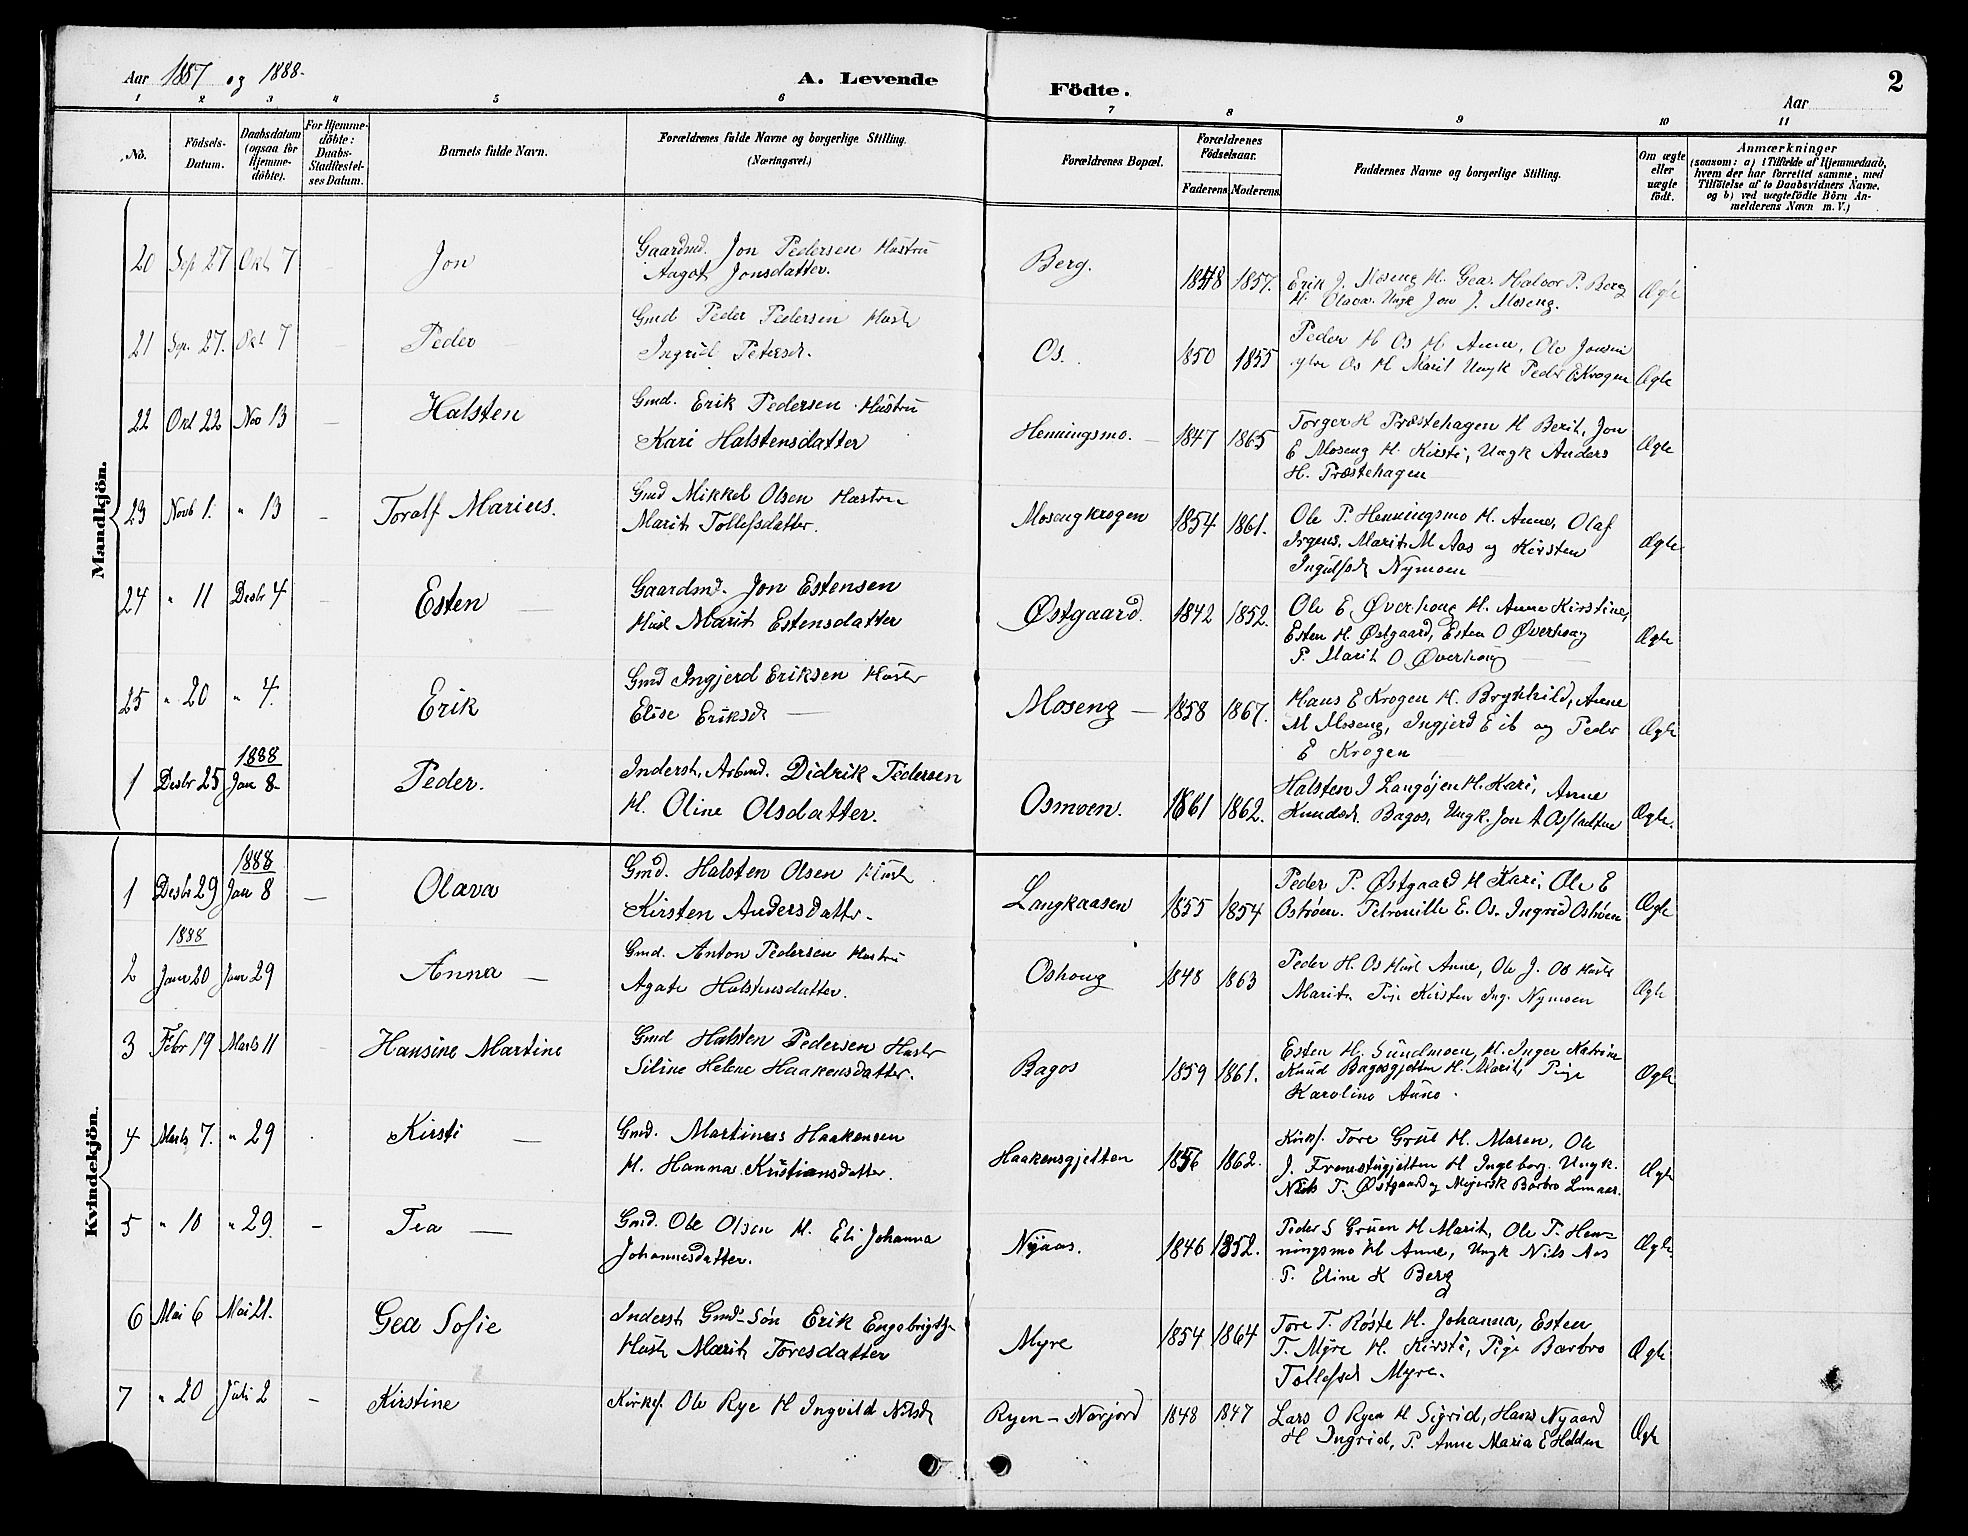 Aar 1887 og 1888.
A. Levende Födte.
Aar
2
1 2 3 4 5 6 7 8 9 10 11
No.
Födsels-Datum.
Daabsdatum (ogsaa for Hjemme-döbte).
For Hjemme-döbte: Daabs-Stadfestel-ses Datum.
Barnets fulde Navn.
Forældrenes fulde Navne og borgerlige Stilling. (Næringsvei.)
Forældrenes Bopæl.
Forældrenes Födselsaar.
Faderens. Moderens.
Faddernes Navne og borgerlige Stilling.
Om ægte eller uægte födt.
Anmærkninger
(saasom: a) i Tilfælde af Hjemmedaab, hvem der har forrettet samme, med Tilföielse af to Daabsvidners Navne. og b) ved uægtefödte Börn Anmelderens Navn m. V.)
Mandkjön.
20 Sep 27 Okt 7 Jon
Gaardmd. Jon Pedersen Hustru
Aagot Jonsdatter.
Berg. 1848 1857.
Erik J. Moseng H. Gea. Halvor P. Berg
H. Olava. Ungk Jon J. Moseng.
Ægte
21 Sep. 27. Okt 7 Peder
Gmd Peder Pedersen Hustr
Ingrid Petersd.
Os. 1850 1855
Peder H Os H Anne, Ole Jonsen
Os H Marit Ungk Peder E Krogen
Ægte
22 Okt 22 Nov 13 Halsten
Gmd. Erik Pedersen Hustru
Kari Halstensdatter
Henningsmo. 1847 1865
Torger H Præstehagen H Berit, Jon
E Moseng H. Kirsti, Ungk Anders
H. Præstehagen
Ægte
23 Novb 1. " 13 Toralf Marius.
Gmd Mikkel Olsen Hustru
Marit Tollefsdatter.
Mosengkrogen 1854 1861.
Ole P. Henningsmo H. Anne, Olaf
Irgens. Marit M Aas og Kirsten
Ingulfsd Nymoen
Ægte
24 " 11 Desbr 4 Esten
Gaardmd. Jon Estensen
Hust Marit Estensdatter
Østgaard. 1842 1852.
Ole E. Øverhoug H. Anne Kirstine,
Esten H. Østgaard, Esten O Øverhoug
P. Marit O Øverhoug
Ægte
25 " 20 " 4. Erik
Gmd Ingjerd Eriksen Hustr
Elise Eriksd
Moseng 1858 1867.
Hans E Krogen H. Brynhild, Anne
M Moseng, Ingjerd E ib og Peder
E Krogen
Ægte
1 Desbr 25 1888 Jan 8 Peder.
Inderst, Arbmd. Didrik Pedersen
H. Oline Olsdatter.
Osmoen. 1861 1862.
Halsten J Langøjen H. Kari, Anne
Knudsd. Bagos, Ungk. Jon
Ægte.
Kvindekjön.
1 Desbr 29 1888 Jan 8 Olava
Gmd. Halsten Olsen Hustr
Kirsten Andersdatter
Langkaasen 1855 1854
Peder P. Østgaard H Kari, Ole E
Ostrøen. Petronille E. Os. Ingrid Ostrøen
Ægte
2 1888 Jan 20 Jan 29 Anna
Gmd. Anton Pedersen Hustru
Agate Halstensdatter.
Oshoug 1848 1863
Peder H. Os Hust Anne, Ole J. Os Hustr
Marit. Pige Kirsten Ing. Nymoen
Ægte
3 Febr 19 Marts 11 Hansine Martine
Gmd Halsten Pedersen Hustr
Siline Helene Haakensdatter.
Bagos 1859 1861.
Esten H. Sundmoen, H. Inger Katrine
Knud Bagosgjetten H. Marit, Pige
Karoline Auno.
Ægte
4 Marts 7. " 29 Kirsti
Gmd. Martinus Haakensen
H. Hanna Kristiansdatter.
Haakensgjetten 1856 1862.
Kirks. Tore Grue H. Maren, Ole
J. Fremstugjetten H Ingeborg. Ungk.
Nils T. Østgaard og Barbro
Ægte
5 " 10 " 29. Tea
Gmd. Ole Olsen H. Eli Johanna
Johannesdatter.
Nyaas. 1846 1852.
Peder S Gruen H Marit, Ole P. Hen-
ningsmo H Anne, Ungk Nils Aas
P. Eline K Berg
Ægte.
6 Mai 6 Mai 21. Gea Sofie
Inderst Gmd-Søn Erik Engebrigts.
Hust Marit Toresdatter
Myre 1854 1864
Tore T. Røste H. Johanna, Esten
T. Myre H. Kirsti, Pige Barbro
Tollefsd Myre.
Ægte
7 " 20 Juli 2 Kirstine
Kirkes. Ole Rye H Ingvild Nilsd
Ryen - Narjord 1848 1847
Lars O Ryen H Sigrid, Hans Nyaard
H Ingrid, P. Anne Maria E Holden
Ægte